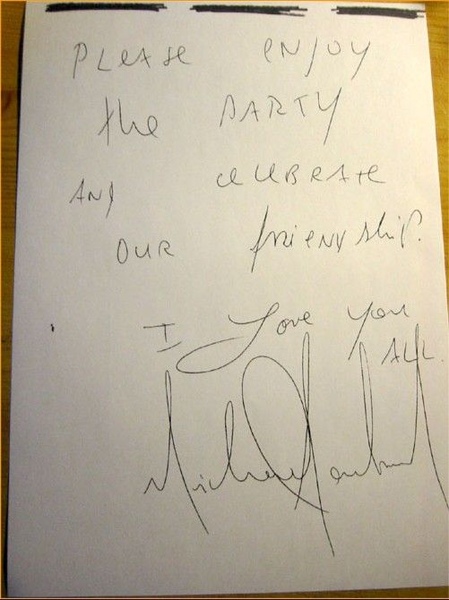 PLEASE ENJOY
the PARTY
AND CELEBRATE
OUR friendship.
I Love you
ALL.